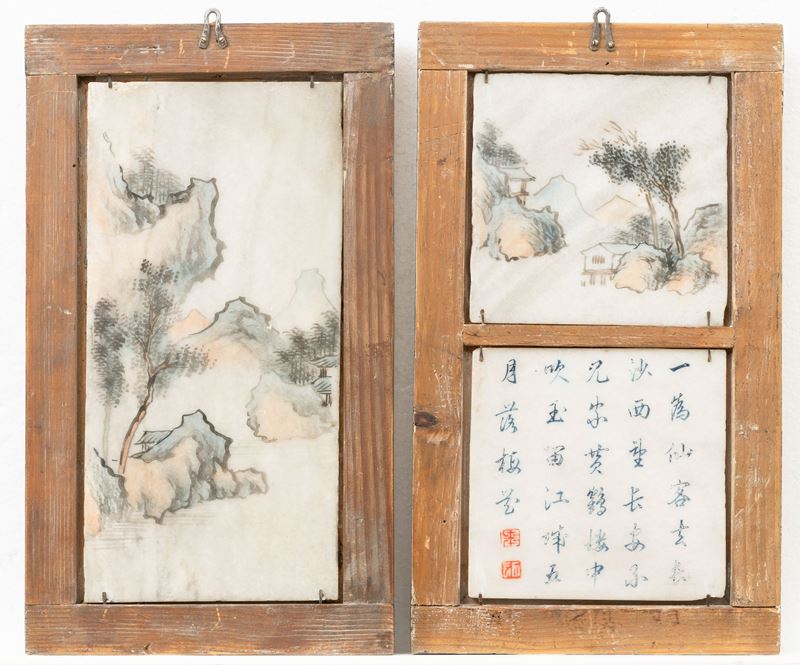 一為仙客去長
沙西望長安不
見家黃鶴樓中
吹玉笛江城五
月落梅花